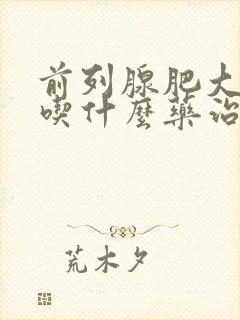 前列腺肥大
喫什麼藥治
荒木夕